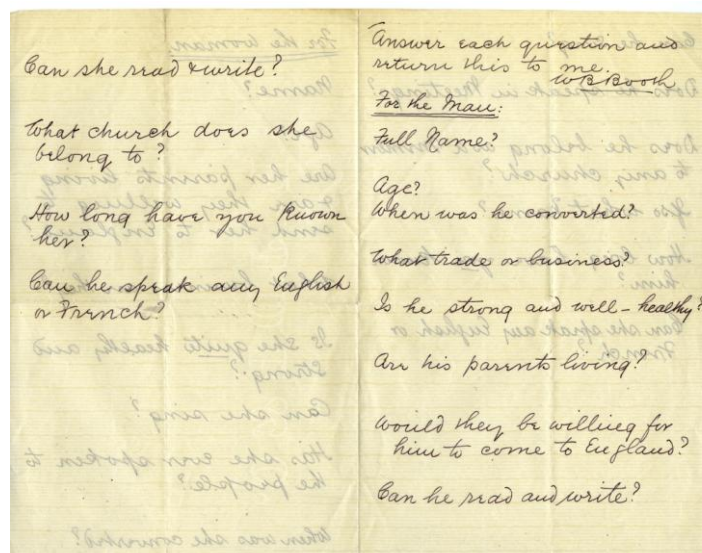 Can she read & write?
What church does she
belong to?
How long have you known
her?
Can he speak any English
or French?
Answer each question and
return this to me.
WBBooth
For the Man:
Full Name?
Age?
When was he converted?
What trade or business?
Is he strong and well-healthy?
Are his parents living?
Would they be willing for
him to come to England?
Can he read and write?